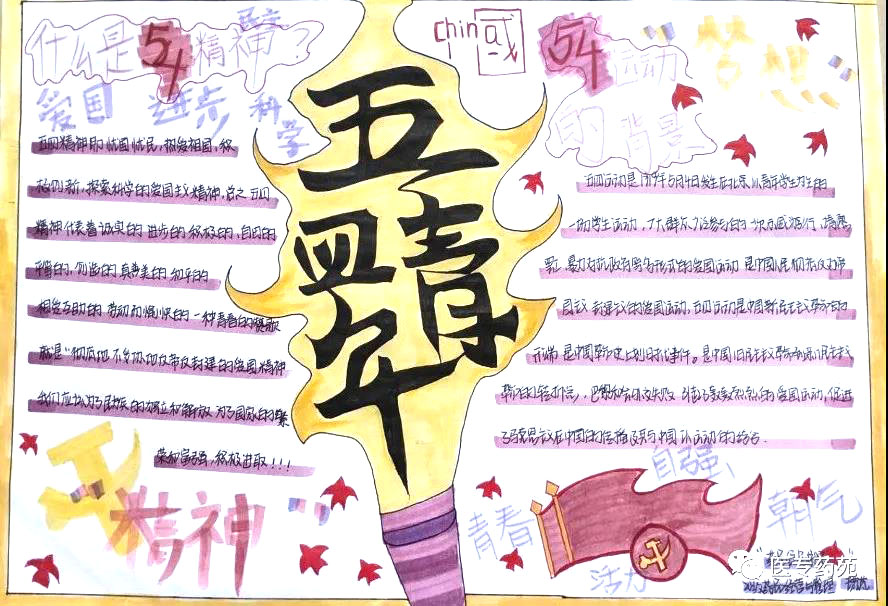 什么是54精神?
爱国 进步 科学
五四精神即忧国忧民,热爱祖国,积
极创新,探索科学的爱国主义精神,总之五四
精神代表着诚实的 进步的 积极的,自由的
平等的,创造的 真善美的 和平的
相爱互助的 劳动而愉快的 一种青春的赞歌
就是"彻底地不妥协地反帝反封建的爱国精神
我们应该为了民族的独立和解放 为了国家的繁
荣和富强,积极进取!!!
"精神"
五四青年
china
54运动
的背景
"梦想"
五四运动是1919年5月4日发生在北京以青年学生为主的
一场学生运动,广大群众
暴力对抗政府等多形式的爱国运动 是中国人民彻底反对帝
国主义 封建主义的爱国运动,五四运动是中国新民主主义革命的
开端 是中国革命史上划时代事件。是中国旧民主主义革命到新民主主义
革命的转折点,巴黎和会外交失败 爱国运动,促进
了马克思主义在中国的传播及其与中国工人运动的结合.
自强、
青春
活力
朝气
医专药苑